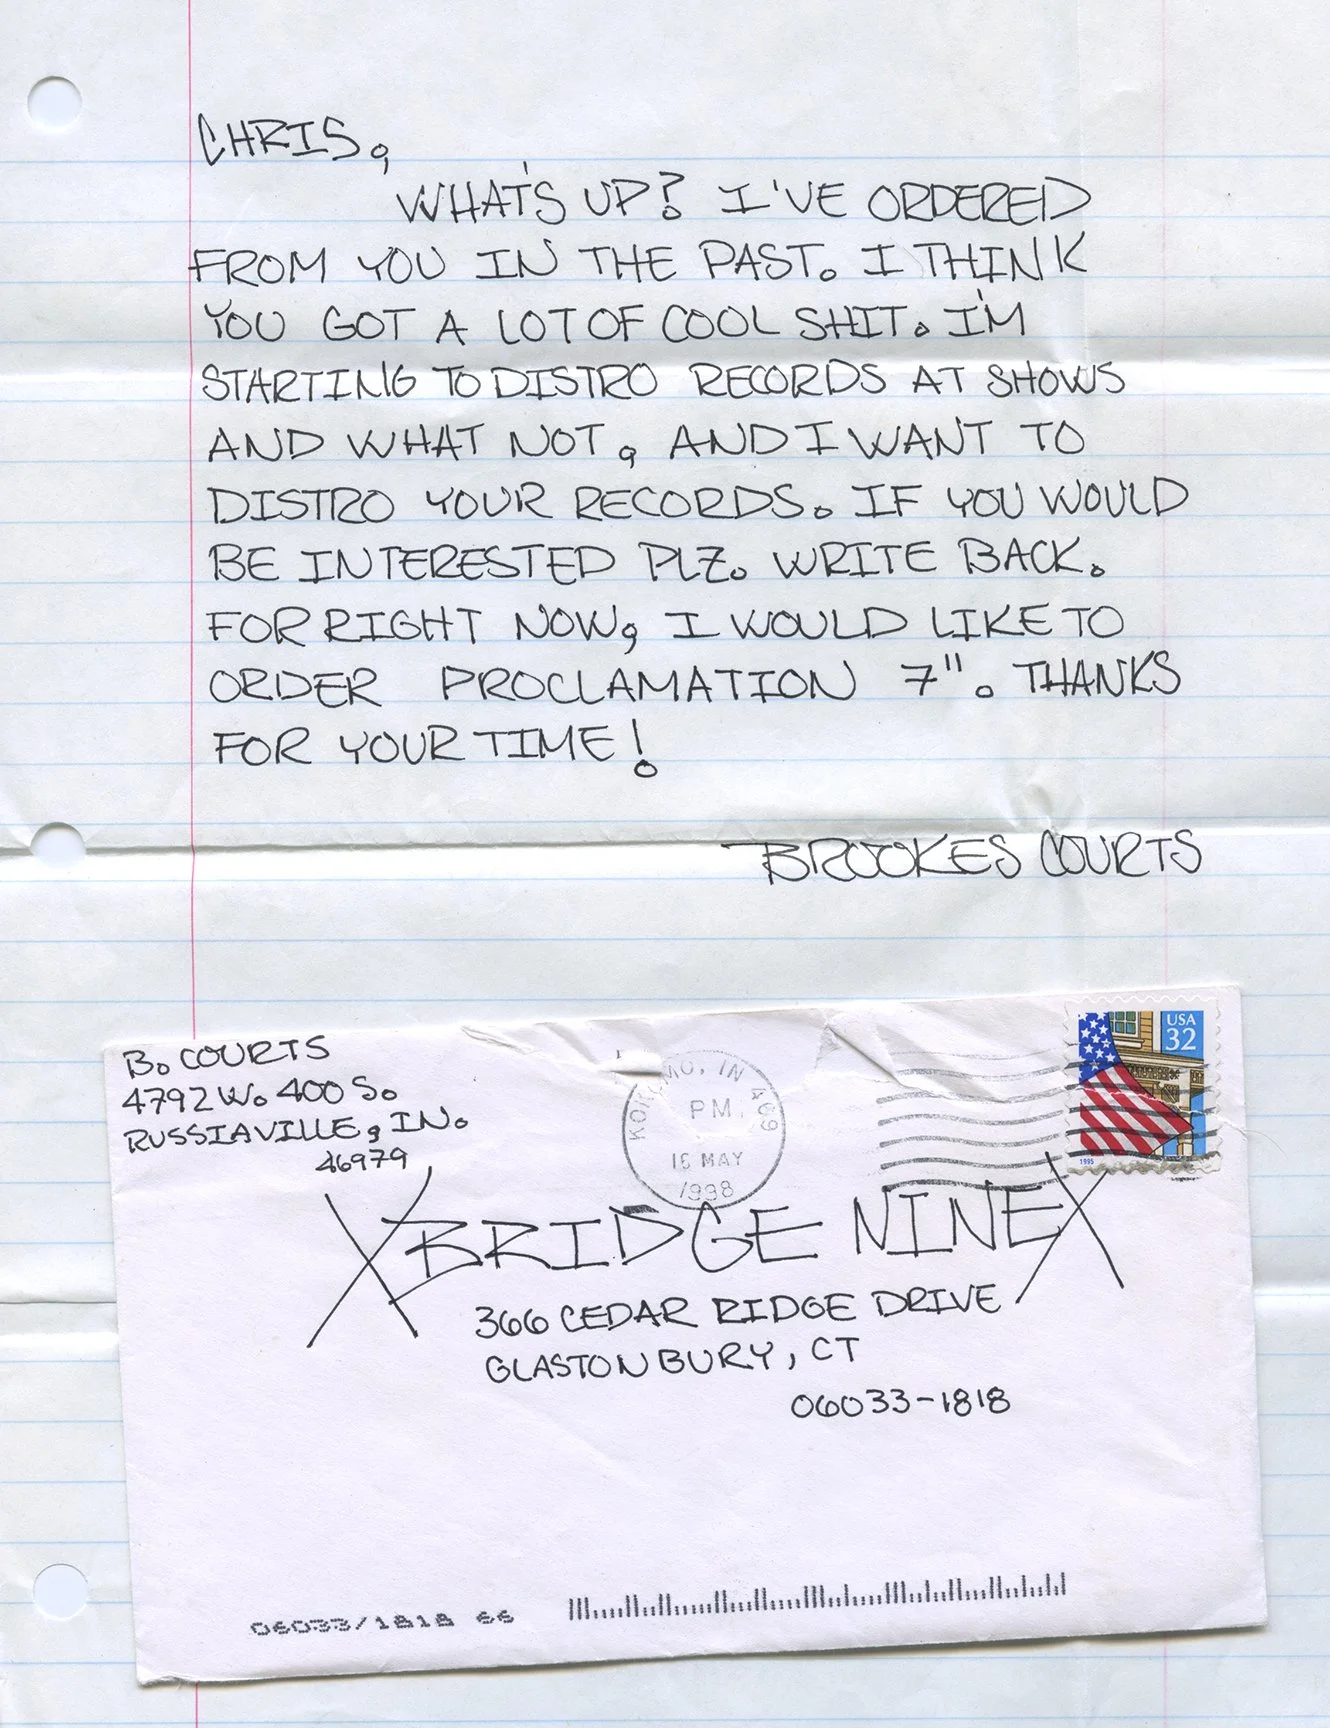 CHRIS,
WHAT'S UP? I'VE ORDERED
FROM YOU IN THE PAST. I THINK
YOU GOT A LOT OF COOL SHIT. I'M
STARTING TO DISTRO RECORDS AT SHOWS
AND WHAT NOT, AND I WANT TO
DISTRO YOUR RECORDS. IF YOU WOULD
BE INTERESTED PLZ. WRITE BACK.
FOR RIGHT NOW, I WOULD LIKE TO
ORDER PROCLAMATION 7". THANKS
FOR YOUR TIME!
BROOKES COURTS
B. COURTS
4792 W. 400 S.
RUSSIAVILLE, IN.
46979
KOKOMO, IN 469
PM
16 MAY
1998
USA
32
1995
XBRIDGE NINEX
366 CEDAR RIDGE DRIVE
GLASTONBURY, CT
06033-1818
06033/1818 66